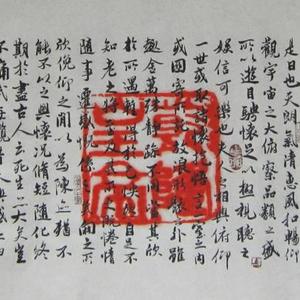 是日也天朗氣清惠風和暢仰
觀宇宙之大俯察品類之盛
所以遊目騁懷足以極視聽之
娛信可樂也夫人之相與俯仰
一世或取諸懷抱悟言一室之內
或因寄所託放浪形骸之外雖
趣舍萬殊靜躁不同當其欣
於所遇暫得於己快然自足不
知老之將至及其所之既惓情
隨事遷感慨係之矣向之所
欣俛仰之間以為陳迹猶不
能不以之興懷況脩短隨化終
期於盡古人云死生亦大矣豈
不痛哉每攬昔人興感之